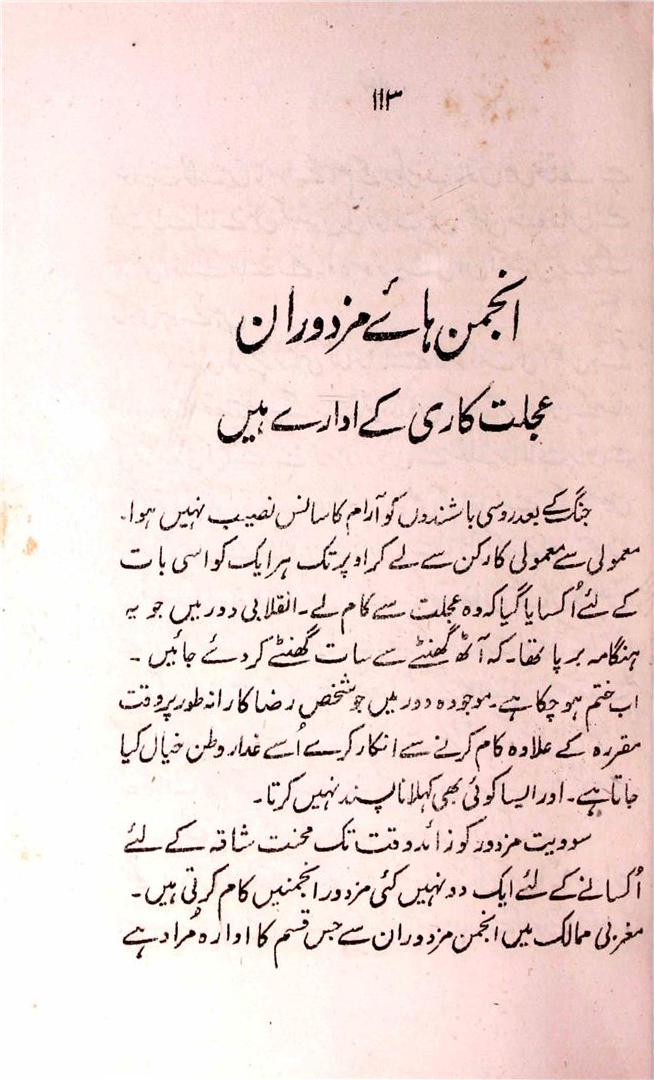 ۱۱۳
انجمن ہائے مزدوران
عجلت کاری کے ادارے ہیں
جنگ کے بعد روسی باشندوں کو آرام کا سانس نصیب نہیں ہوا۔
معمولی سے معمولی کارکن سے لے کر اوپر تک ہر ایک کو اسی بات
کے لئے اُکسایا گیا کہ وہ عجلت سے کام لے۔ انقلابی دور میں جو یہ
ہنگامہ برپا تھا۔ کہ آٹھ گھنٹے سے سات گھنٹے کر دئے جائیں ۔
اب ختم ہو چکا ہے۔ موجودہ دور میں جو شخص رضا کارانہ طور پر وقت
مقررہ کے علاوہ کام کرنے سے انکار کرے اُسے غدار وطن خیال کیا
جاتا ہے۔ اور ایسا کوئی بھی کہلانا پسند نہیں کرتا۔
سوویت مزدور کو زائد وقت تک محنت شاقہ کے لئے
اُکسانے کے لئے ایک دو نہیں کئی مزدور انجمنیں کام کرتی ہیں۔
مغربی ممالک میں انجمن مزدوران سے جس قسم کا ادارہ مُراد ہے